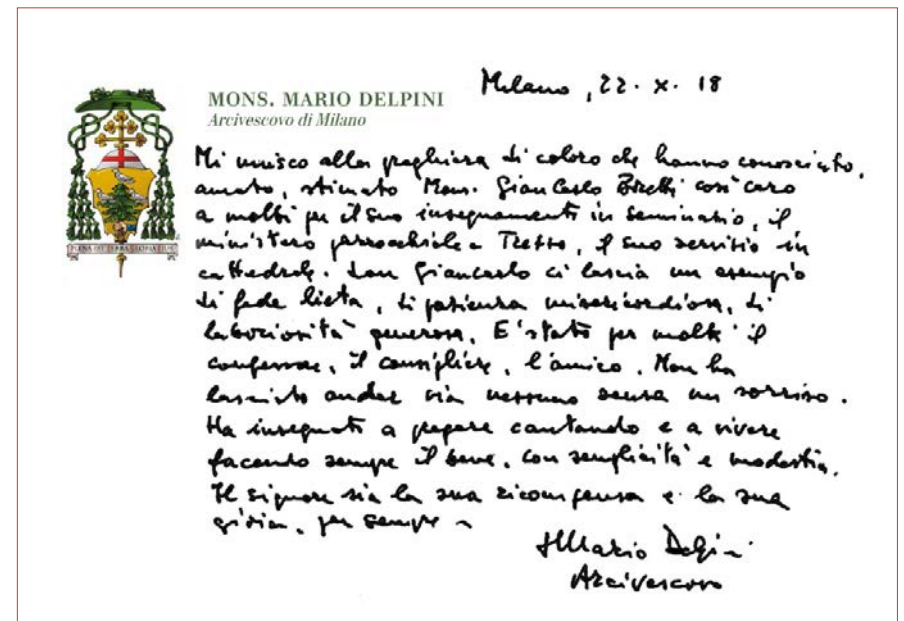 Milano, 22. X. 18
MONS. MARIO DELPINI
Arcivescovo di Milano
Mi unisco alla preghiera di coloro che hanno conosciuto,
amato, stimato Mons. GianCarlo così caro
a molti per il suo insegnamento in seminario, il
ministero parrocchiale a Trezzo, il suo servizio in
cattedrale. Don Giancarlo ci lascia un esempio
di fede lieta, di pazienza misericordiosa, di
laboriosità generosa. E' stato per molti il
confessore, il consigliere, l'amico. Non ha
lasciato andar via nessuno senza un sorriso.
Ha insegnato a pregare cantando e a vivere
facendo sempre il bene, con semplicità e modestia.
Il Signore sia la sua ricompensa e la sua
gioia, per sempre
PLENA EST TERRA GLORIA EIUS
+ Mario Delpini
Arcivescovo